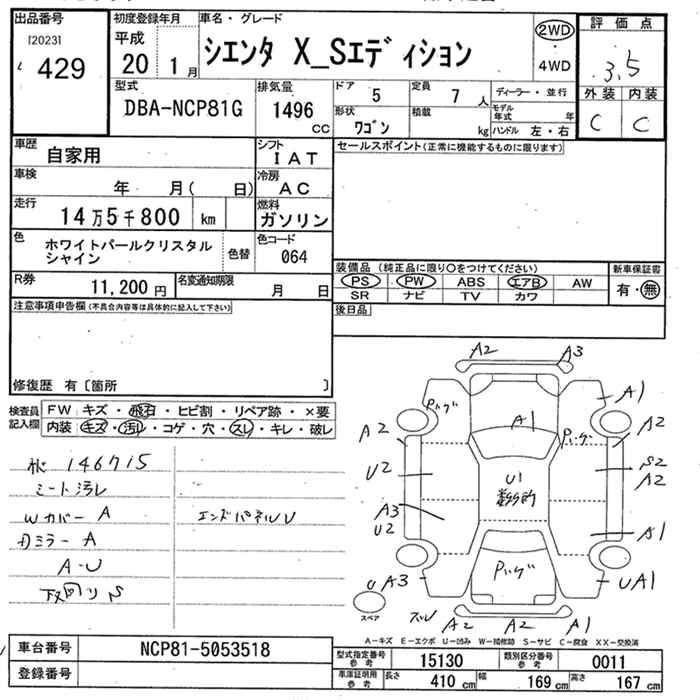 出品番号
[2023]
429
初度登録年月
平成
20 1月
車名・グレード
シエンタ X_Sエディション
2WD
4WD
評価点
3.5
外装 内装
C C
型式
DBA-NCP81G
排気量
1496
cc
ドア 5
定員 7人
形状
ワゴン
積載 kg
ディーラー・並行
モデル年式 年
ハンドル 左・右
車歴
自家用
シフト
IAT
車検
年 月( 日)
冷房
AC
走行
14万5千800 km
燃料
ガソリン
色
ホワイトパールクリスタル
シャイン
色替
色コード
064
R券
11,200円
名変通知期限
月 日
セールスポイント(正常に機能するものに限ります)
装備品 (純正品に限り○をつけてください)
PS PW ABS エアB AW
SR ナビ TV カワ
新車保証書
有・無
後日品
注意事項申告欄(不具合内容等は具体的に記入して下さい)
修復歴 有[箇所 ]
検査員
記入欄
FW キズ・飛石・ヒビ割・リペア跡・×要
内装 キズ・汚レ・コゲ・穴・スレ・キレ・破レ
146715
シート汚レ
Wカバー A
Dミラー A
A-U
エンドパネルU
A2 A3
A1
A2
S2
A2
A1
UA1
A1
U1
A2
U2
A3
U2
U A3
スペア
A2 A2 A1
A-キズ E-エクボ U-凹み W-補修跡 S-サビ C-腐食 XX-交換済
車台番号
NCP81-5053518
登録番号
型式指定番号
参考
15130
類別区分番号
参考
0011
車庫証明用
参考
長さ 410cm
幅 169cm
高さ 167cm